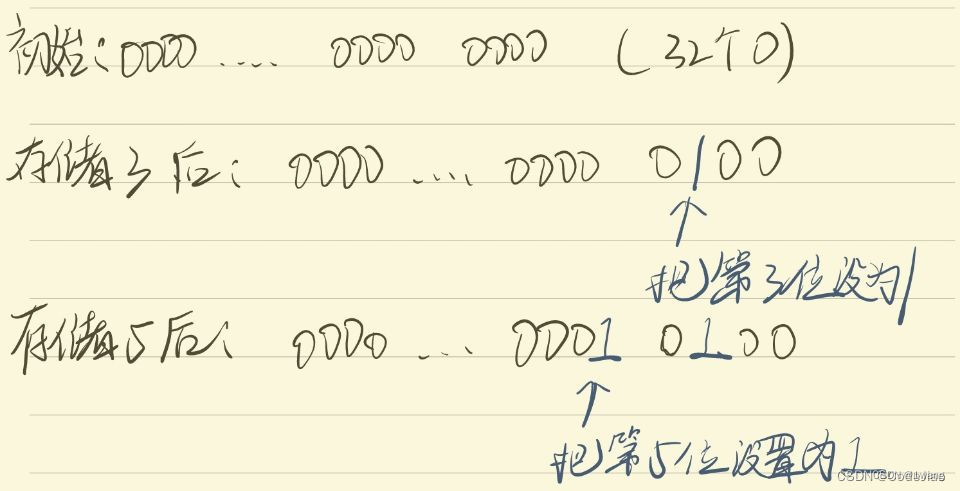 初始:0000 .... 0000 0000 (32个0)
存储3后: 0000 .... 0000 0100
把第3位设为1
存储5后: 0000 ... 0001 0100
把第5位设置为1